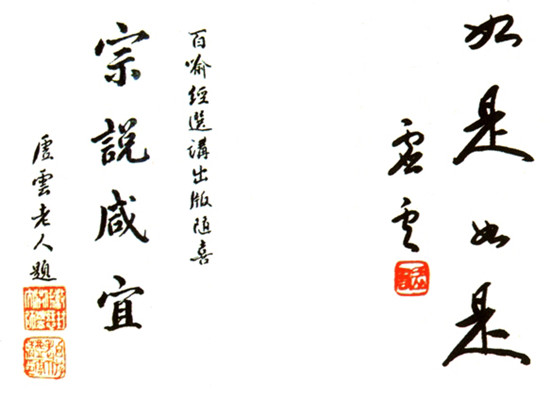 如是如是
虛雲
百喻經選講出版随喜
宗說咸宜
虛雲老人題